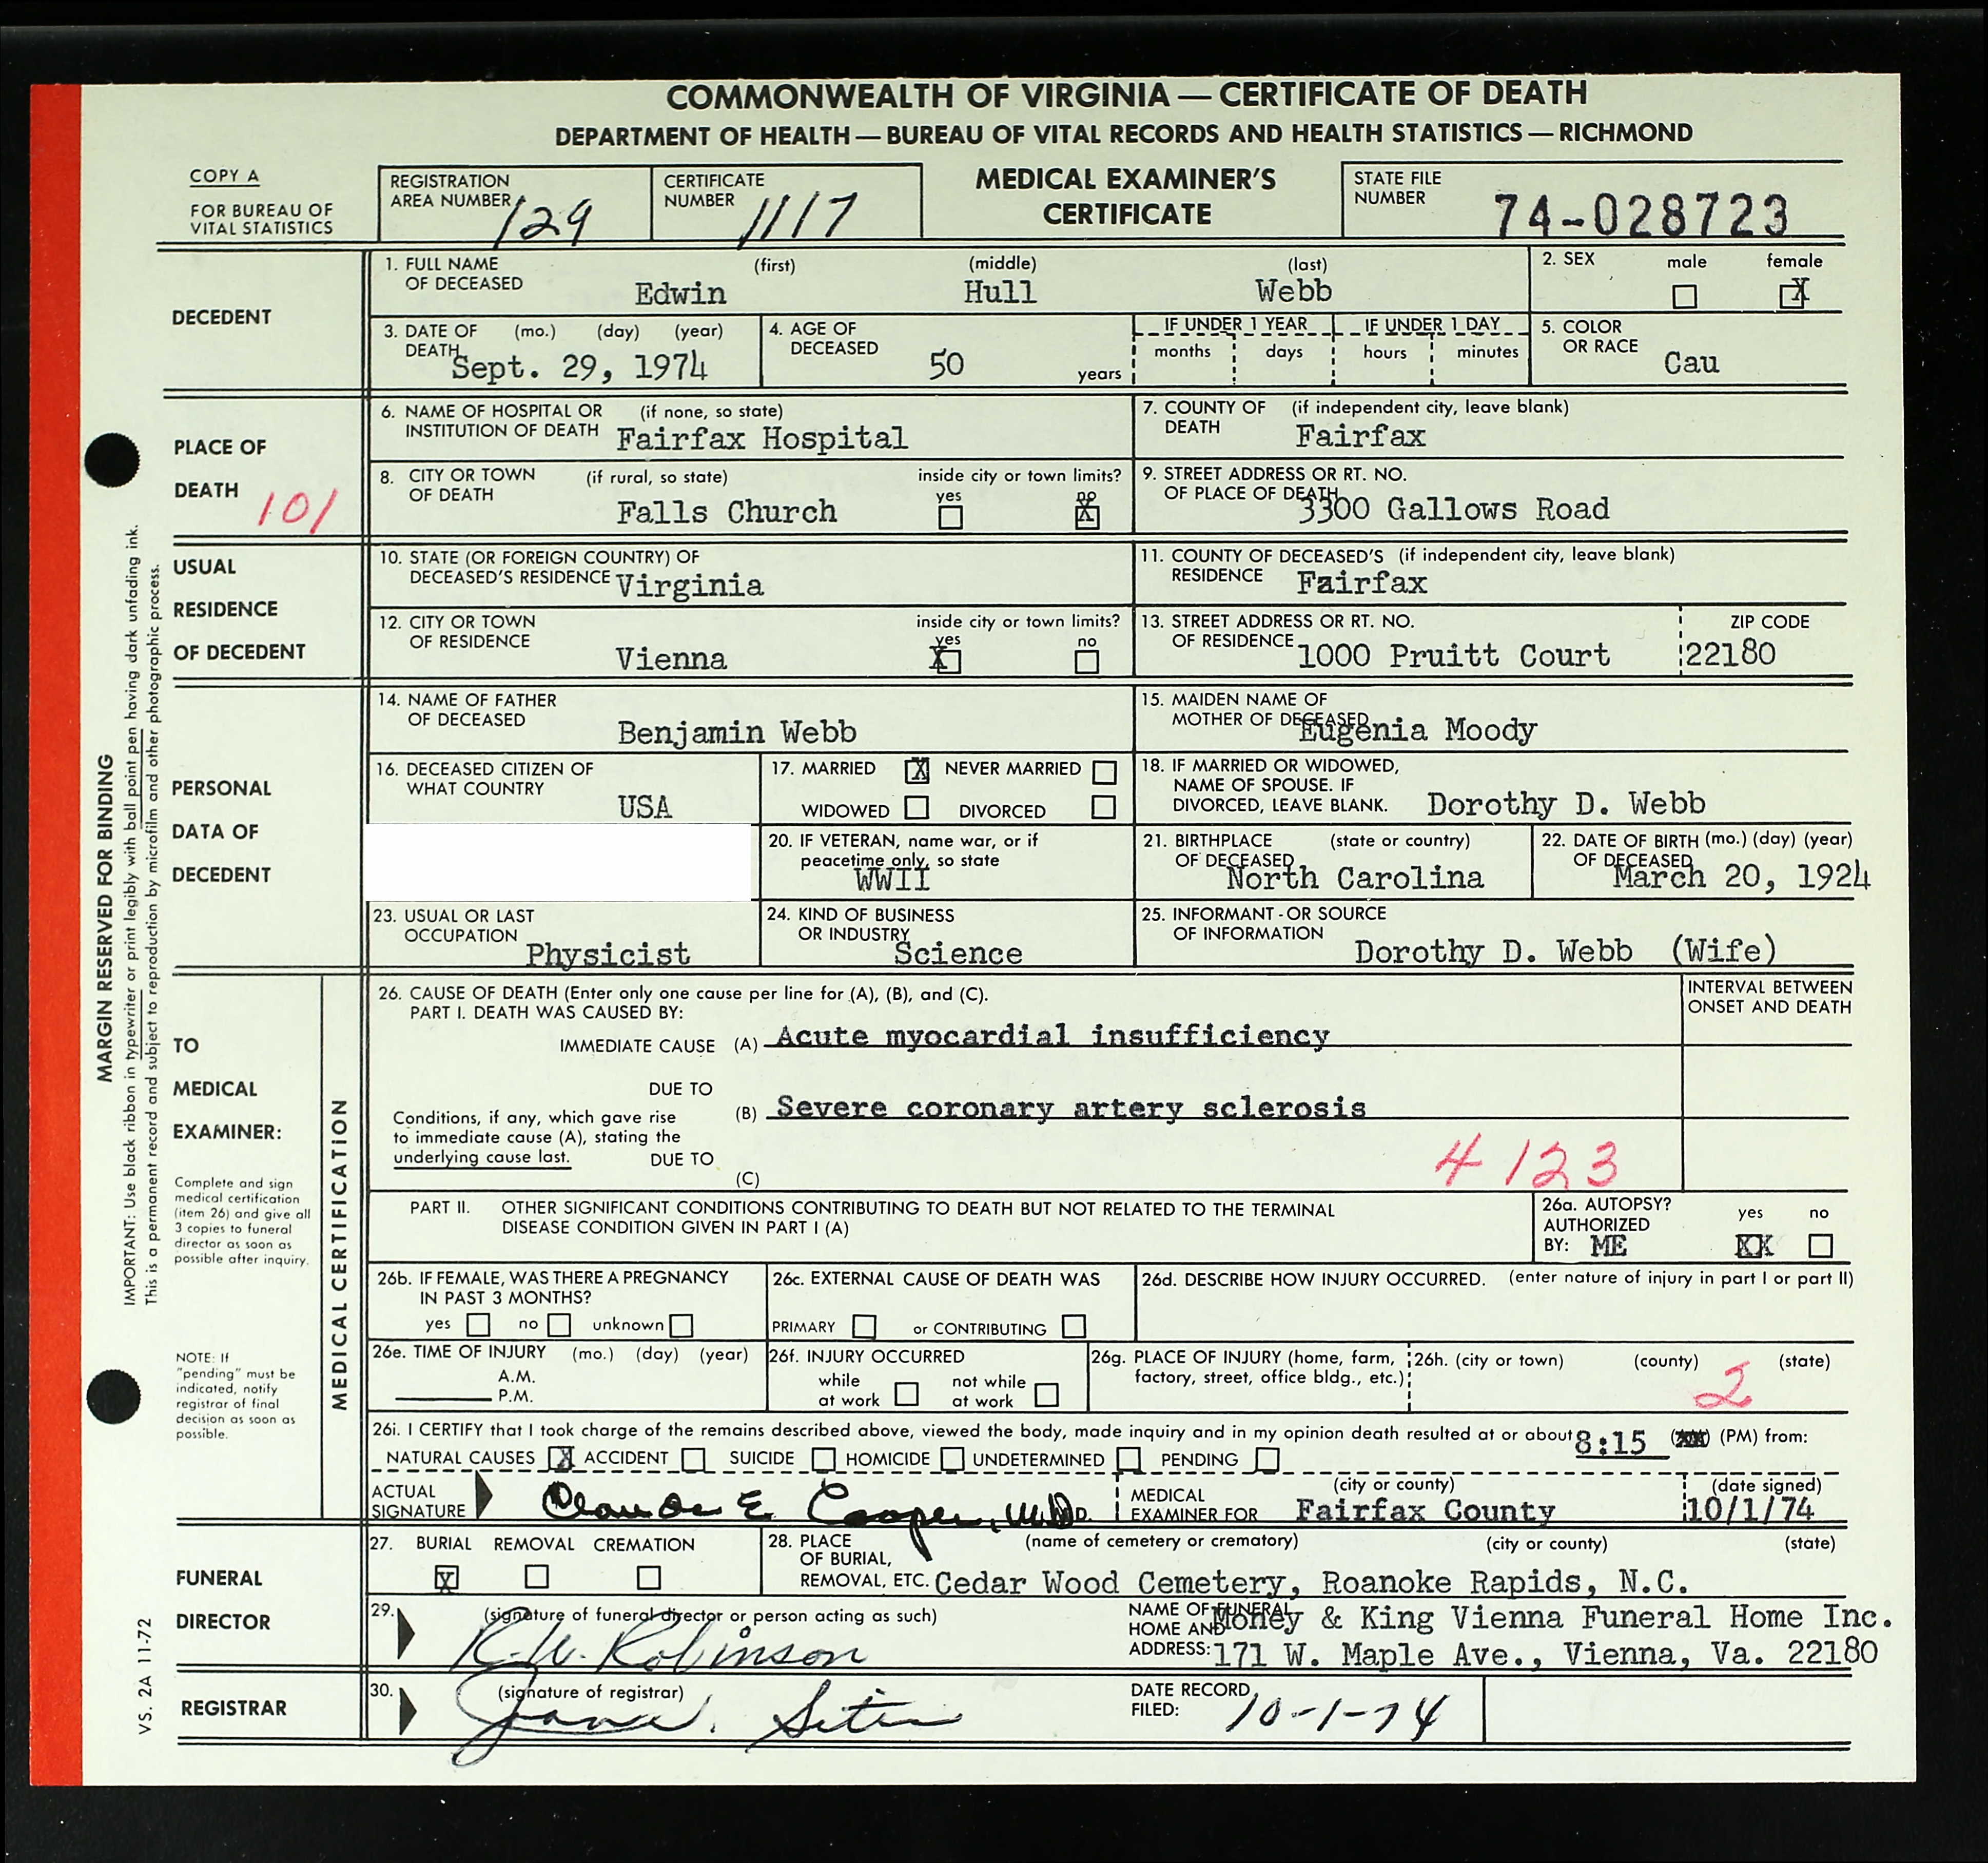 COMMONWEALTH OF VIRGINIA — CERTIFICATE OF DEATH
DEPARTMENT OF HEALTH — BUREAU OF VITAL RECORDS AND HEALTH STATISTICS — RICHMOND
COPY A
FOR BUREAU OF
VITAL STATISTICS
REGISTRATION
AREA NUMBER 129
CERTIFICATE
NUMBER 1117
MEDICAL EXAMINER'S
CERTIFICATE
STATE FILE
NUMBER 74-028723
DECEDENT
1. FULL NAME (first) (middle) (last)
OF DECEASED Edwin Hull Webb
2. SEX male female
X
3. DATE OF (mo.) (day) (year)
DEATH Sept. 29, 1974
4. AGE OF
DECEASED 50 years
IF UNDER 1 YEAR IF UNDER 1 DAY
months days hours minutes
5. COLOR
OR RACE Cau
PLACE OF
DEATH 101
6. NAME OF HOSPITAL OR (if none, so state)
INSTITUTION OF DEATH Fairfax Hospital
7. COUNTY OF (if independent city, leave blank)
DEATH Fairfax
8. CITY OR TOWN (if rural, so state) inside city or town limits?
OF DEATH Falls Church yes no X
9. STREET ADDRESS OR RT. NO.
OF PLACE OF DEATH 3300 Gallows Road
USUAL
RESIDENCE
OF DECEDENT
10. STATE (OR FOREIGN COUNTRY) OF
DECEASED'S RESIDENCE Virginia
11. COUNTY OF DECEASED'S (if independent city, leave blank)
RESIDENCE Fairfax
12. CITY OR TOWN inside city or town limits?
OF RESIDENCE Vienna yes X no
13. STREET ADDRESS OR RT. NO. ZIP CODE
OF RESIDENCE 1000 Pruitt Court 22180
PERSONAL
DATA OF
DECEDENT
14. NAME OF FATHER
OF DECEASED Benjamin Webb
15. MAIDEN NAME OF
MOTHER OF DECEASED Eugenia Moody
16. DECEASED CITIZEN OF
WHAT COUNTRY USA
17. MARRIED X NEVER MARRIED
WIDOWED DIVORCED
18. IF MARRIED OR WIDOWED,
NAME OF SPOUSE. IF
DIVORCED, LEAVE BLANK. Dorothy D. Webb
20. IF VETERAN, name war, or if
peacetime only, so state
WWII
21. BIRTHPLACE (state or country)
OF DECEASED North Carolina
22. DATE OF BIRTH (mo.) (day) (year)
OF DECEASED March 20, 1924
23. USUAL OR LAST
OCCUPATION Physicist
24. KIND OF BUSINESS
OR INDUSTRY Science
25. INFORMANT - OR SOURCE
OF INFORMATION Dorothy D. Webb (Wife)
TO
MEDICAL
EXAMINER:
Complete and sign
medical certification
(item 26) and give all
3 copies to funeral
director as soon as
possible after inquiry.
NOTE: If
"pending" must be
indicated, notify
registrar of final
decision as soon as
possible.
MEDICAL CERTIFICATION
26. CAUSE OF DEATH (Enter only one cause per line for (A), (B), and (C).
PART I. DEATH WAS CAUSED BY:
INTERVAL BETWEEN
ONSET AND DEATH
IMMEDIATE CAUSE (A) Acute myocardial insufficiency
DUE TO
(B) Severe coronary artery sclerosis
Conditions, if any, which gave rise
to immediate cause (A), stating the
underlying cause last. DUE TO
(C)
4123
PART II. OTHER SIGNIFICANT CONDITIONS CONTRIBUTING TO DEATH BUT NOT RELATED TO THE TERMINAL
DISEASE CONDITION GIVEN IN PART I (A)
26a. AUTOPSY? yes no
AUTHORIZED
BY: ME XX
26b. IF FEMALE, WAS THERE A PREGNANCY
IN PAST 3 MONTHS?
yes no unknown
26c. EXTERNAL CAUSE OF DEATH WAS
PRIMARY or CONTRIBUTING
26d. DESCRIBE HOW INJURY OCCURRED. (enter nature of injury in part I or part II)
26e. TIME OF INJURY (mo.) (day) (year)
A.M.
P.M.
26f. INJURY OCCURRED
while not while
at work at work
26g. PLACE OF INJURY (home, farm,
factory, street, office bldg., etc.)
26h. (city or town) (county) (state)
2
26i. I CERTIFY that I took charge of the remains described above, viewed the body, made inquiry and in my opinion death resulted at or about 8:15 (PM) from:
NATURAL CAUSES X ACCIDENT SUICIDE HOMICIDE UNDETERMINED PENDING
ACTUAL
SIGNATURE Claude E. Cooper, M.D.
MEDICAL (city or county) (date signed)
EXAMINER FOR Fairfax County 10/1/74
FUNERAL
DIRECTOR
27. BURIAL REMOVAL CREMATION
X
28. PLACE (name of cemetery or crematory) (city or county) (state)
OF BURIAL,
REMOVAL, ETC. Cedar Wood Cemetery, Roanoke Rapids, N.C.
29. (signature of funeral director or person acting as such)
R.W. Robinson
NAME OF FUNERAL Money & King Vienna Funeral Home Inc.
HOME AND
ADDRESS: 171 W. Maple Ave., Vienna, Va. 22180
REGISTRAR
30. (signature of registrar)
DATE RECORD
FILED: 10-1-74
MARGIN RESERVED FOR BINDING
IMPORTANT: Use black ribbon in typewriter or print legibly with ball point pen having dark unfading ink.
This is a permanent record and subject to reproduction by microfilm and other photographic process.
VS. 2A 11-72